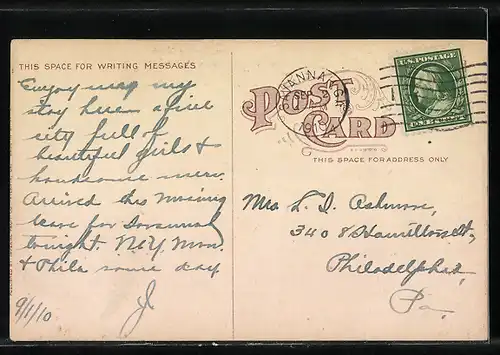 THIS SPACE FOR WRITING MESSAGES
Enjoying my
stay here a fine
city full of
beautiful girls &
handsome men.
Arrived this morning
leave for Savannah
tonight. N.Y. Mon.
& Phila some day
J
9/1/10
SAVANNAH, GA.
1910
U.S. POSTAGE
POST CARD
THIS SPACE FOR ADDRESS ONLY
Mrs L. D. Ashmore,
3408 Hamilton St.,
Philadelphia,
Pa.